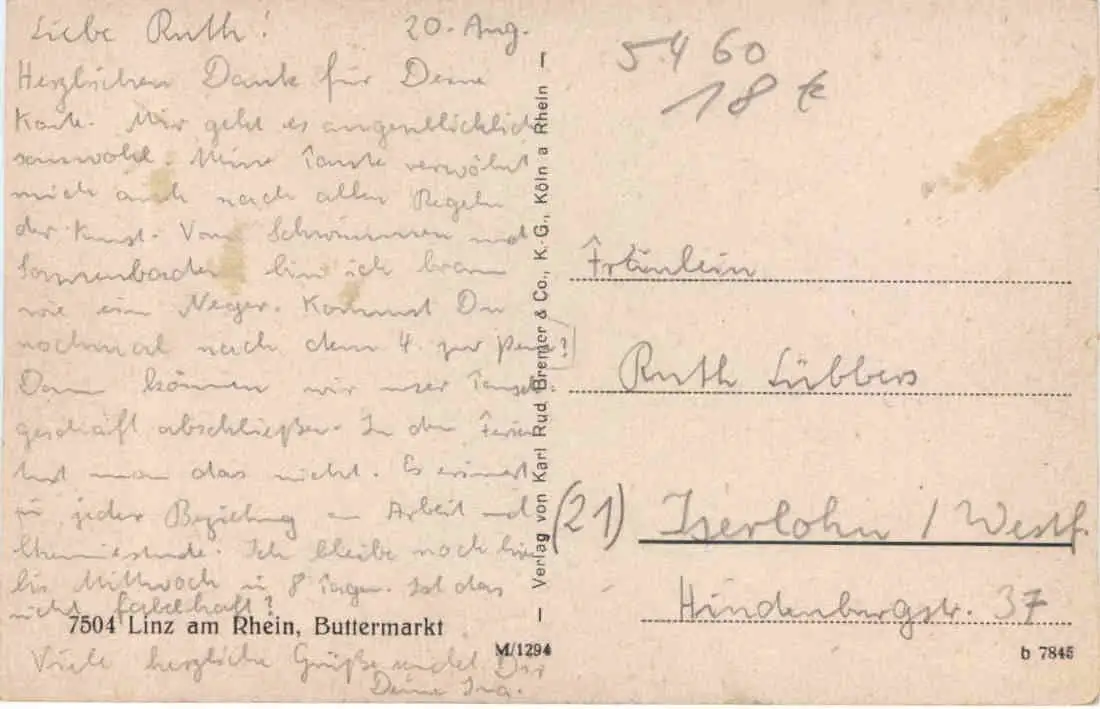 Liebe Ruth! 20. Aug.
Herzlichen Dank für Deine
Karte. Mir geht es augenblicklich
sauwohl. Meine Tante verwöhnt
mich auch nach allen Regeln
der Kunst. Vom Schwimmen und
Sonnenbaden bin ich braun
wie ein Neger. Kommst Du
nochmal nach dem 4. zur Penne?
Dann können wir unser Tausch-
geschäft abschließen. In den Ferien
tut man das nicht. Es erinnert
in jeder Beziehung an Arbeit und
Chemiestunde. Ich bleibe noch hier
bis Mittwoch in 8 Tagen. Ist das
nicht fabelhaft?
7504 Linz am Rhein, Buttermarkt
Viele herzliche Grüße sendet Dir
Deine
M/1294
— Verlag von Karl Rud. Bremer & Co., K.-G., Köln a Rhein —
5.460
18
Fräulein
Ruth Lübbers
(21) Iserlohn / Westf.
Hindenburgstr. 37
b 7845